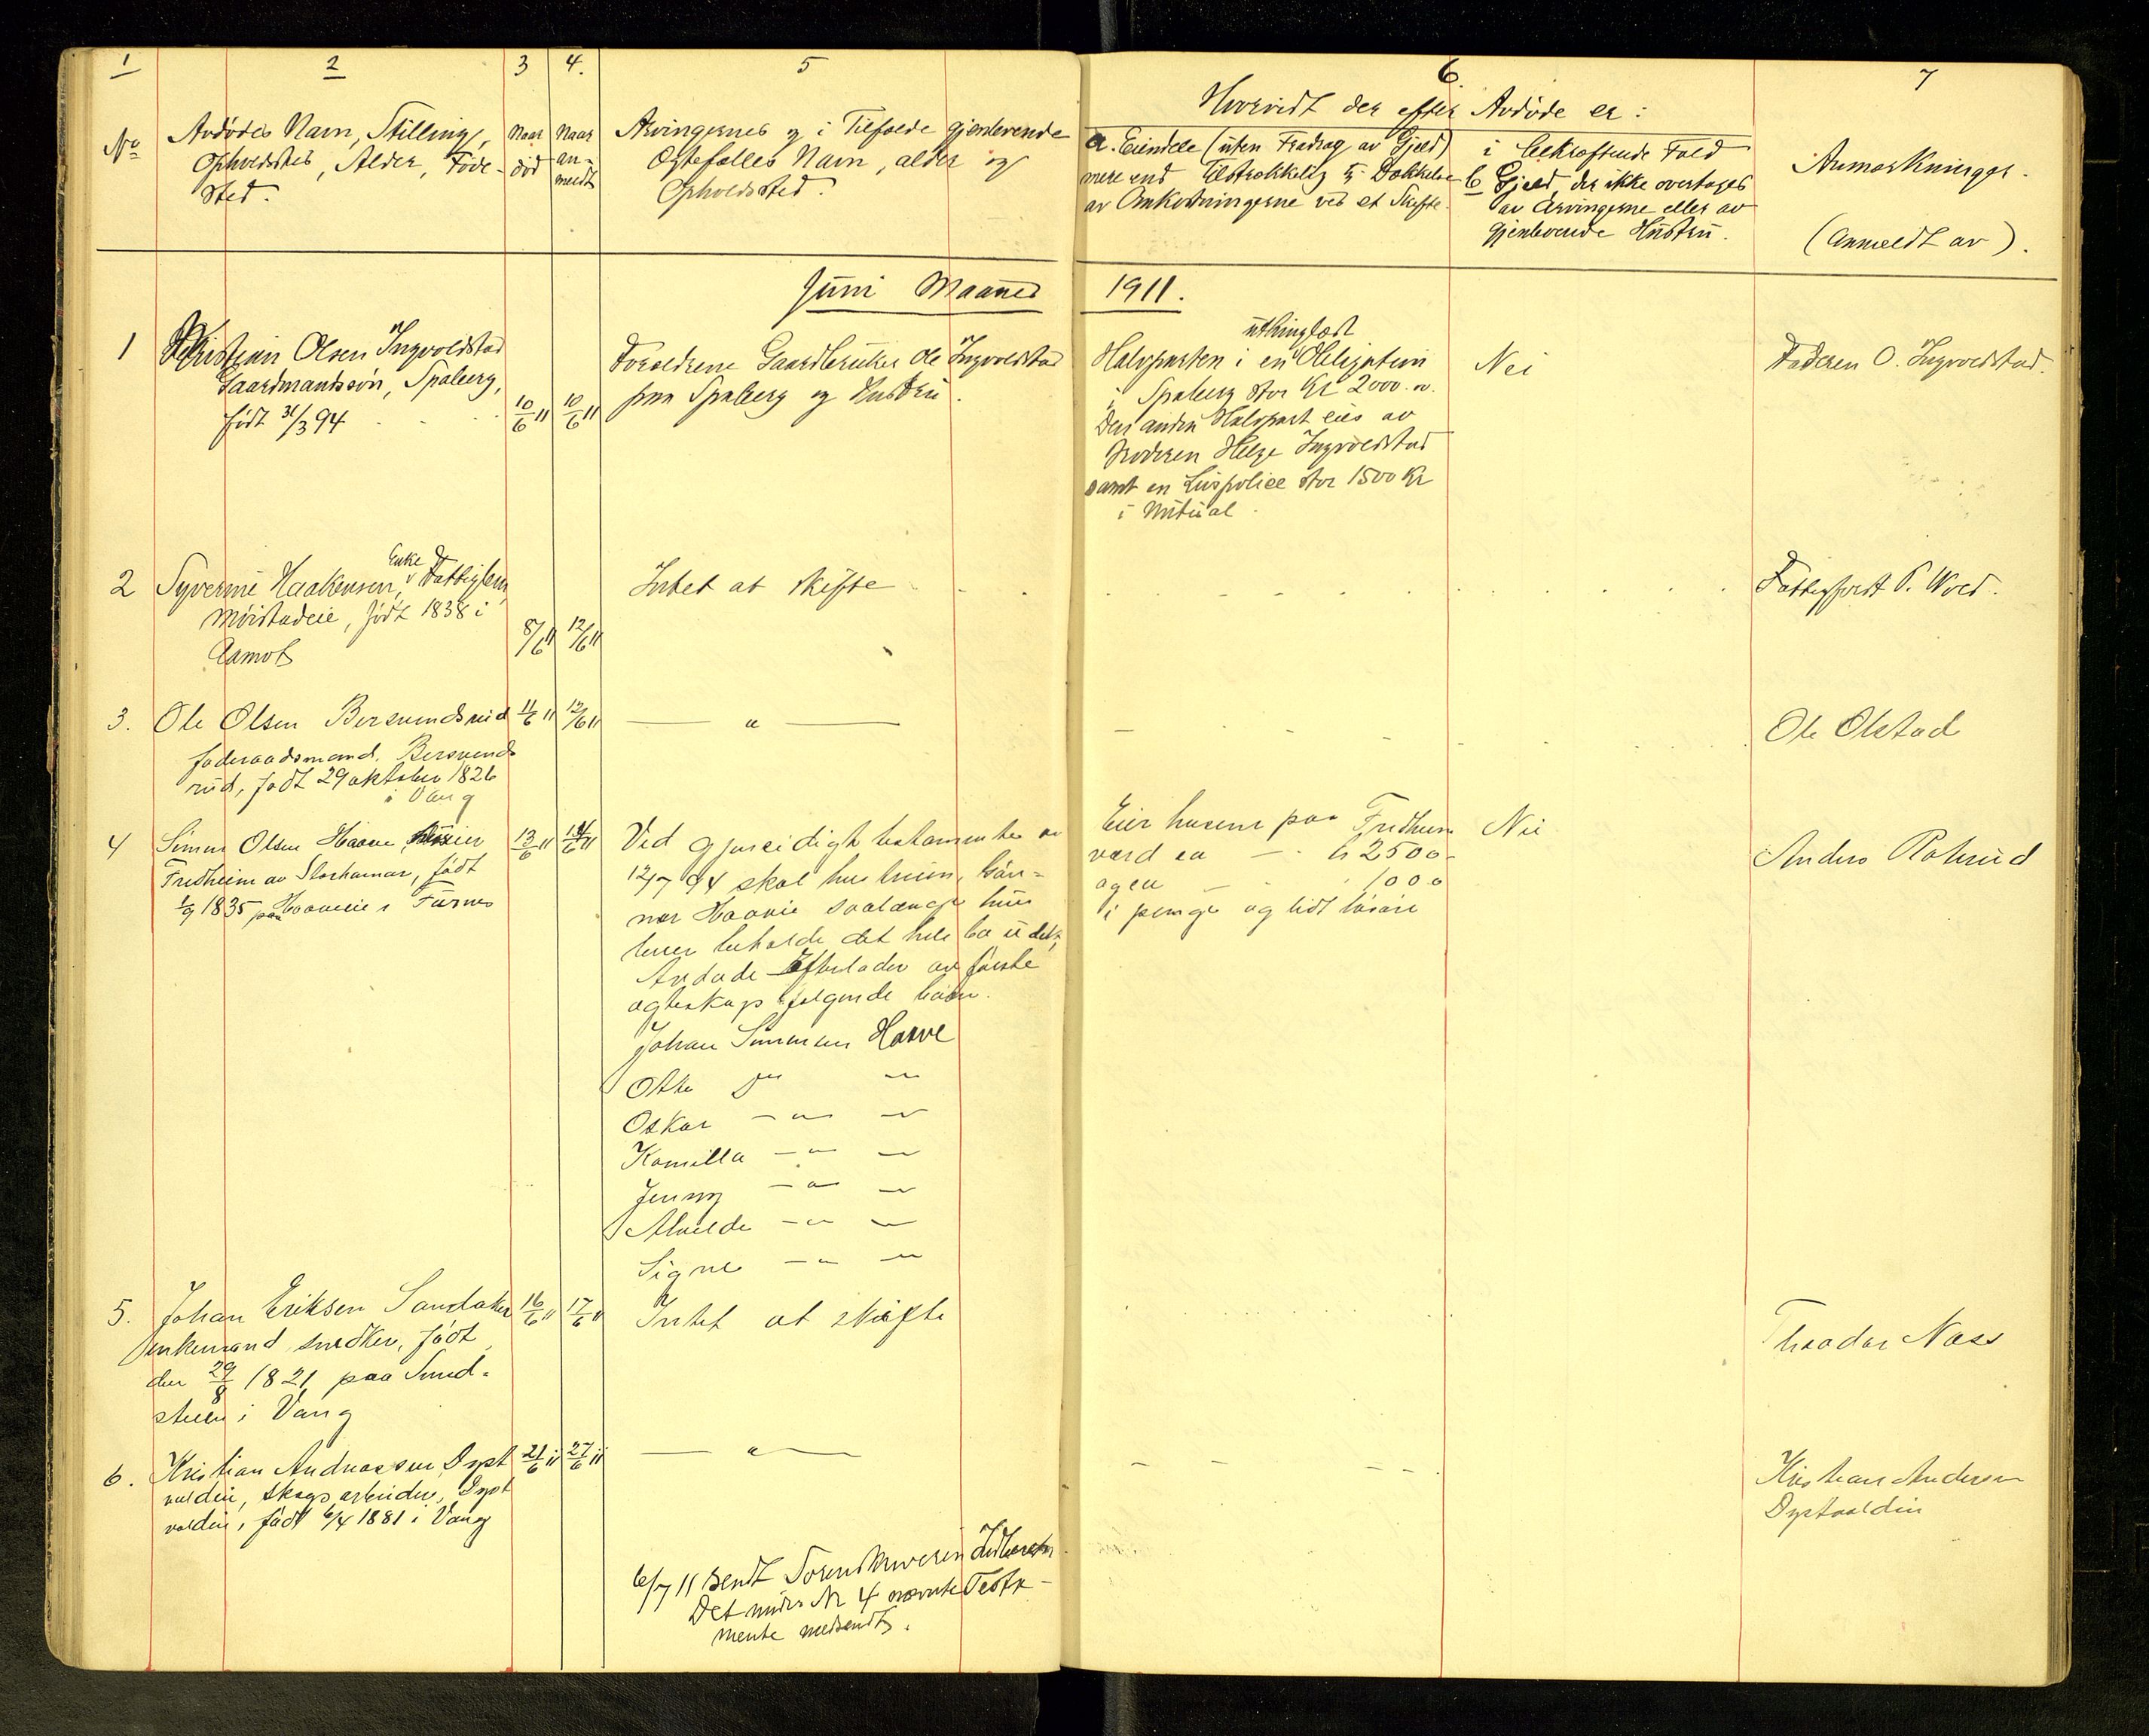 1
2
3
4.
5
6
7
No
Avdødes Navn, Stilling,
Opholdssted, Alder, Føde-
sted.
Naar
död
Naar
an-
meldt
Arvingernes og i Tilfælde gjenlevende
Ægtefælles Navn, alder og
Opholdssted.
Hvorvidt der efter Avdøde er:
a. Eiendele (uten Fradrag av Gjæld)
mere end tilstrækkelig til Dækkelse
av Omkostningerne ved et Skifte.
i bekræftende Fald
b Gjæld, der ikke overtages
av Arvingerne eller av
gjenlevende Hustru.
Anmærkninger.
(Anmeldt av).
Juni Maaned 1911.
1
Kristian Olsen Ingvoldstad
Gaardmandssøn, Spaberg,
født 31/3 94
10/6 11
10/6 11
Forældrene Gaardbruker Ole Ingvoldstad
paa Spaberg og Hustru.
uthinglæst
Halvparten i en Obligation
i Spaberg stor Kr 2000.
Den anden Halvpart eies av
Broderen Helge Ingvoldstad
samt en Livspolice stor 1500 Kr
i Mutual
Nei
Faderen O. Ingvoldstad.
2
Enke
Syverine Haakensen, Fattiglem
Mørstadeie, født 1838 i
Aamot
8/6 11
12/6 11
Intet at skifte
Fattigforst P. Wold.
3.
Ole Olsen Bersvendsrud
føderaadsmand. Bersvends
rud, født 29 oktober 1826
i Vang
11/6 11
12/6 11
— " —
Ole Olstad
4
Simen Olsen Haave,
Fredheim av Storhamar, født
1/9 1835 paa Haaveeie i Furnes
13/6 11
14/6 11
Ved gjensidigt testamente av
12/7 94 skal hustruen, Gun-
nor Haave saalænge hun
lever beholde det hele bo udelt,
Avdøde Efterlader av første
ægteskap følgende børn.
Johan Simensen Haave
Otto " "
Oskar — " — "
Kamilla — " — "
Jenny — " — "
Alvilde — " — "
Signe — " — "
Eier husene paa Fredheim
værd ca — kr 2500
og ca — 1000
i penge og lidt løsøre
Nei
Anders Roterud
5.
Johan Eriksen Sandaker
enkemand snedker, født
den 29/8 1821 paa Sund-
stuen i Vang
16/6 11
17/6 11
Intet at skifte
Theodor Næss
6.
Kristian Andreassen Dyst
voldeie, skogsarbeider, Dyst
voldeie, født 6/4 1881 i Vang
21/6 11
27/6 11
— " —
Kristian Andersen
Dystvoldeie
6/7 11 sendt Sorenskriveren
Det under Nr 4 nævnte Testa-
mente medsendt.